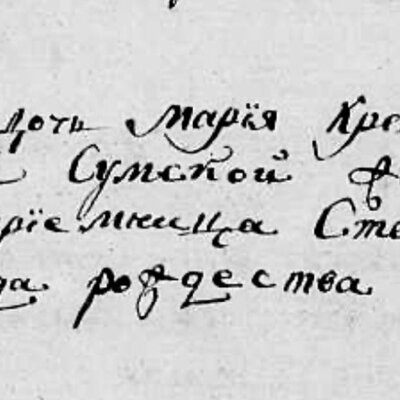 дочь Марїя Кре
Сумской
рїемница Ст
да рождества